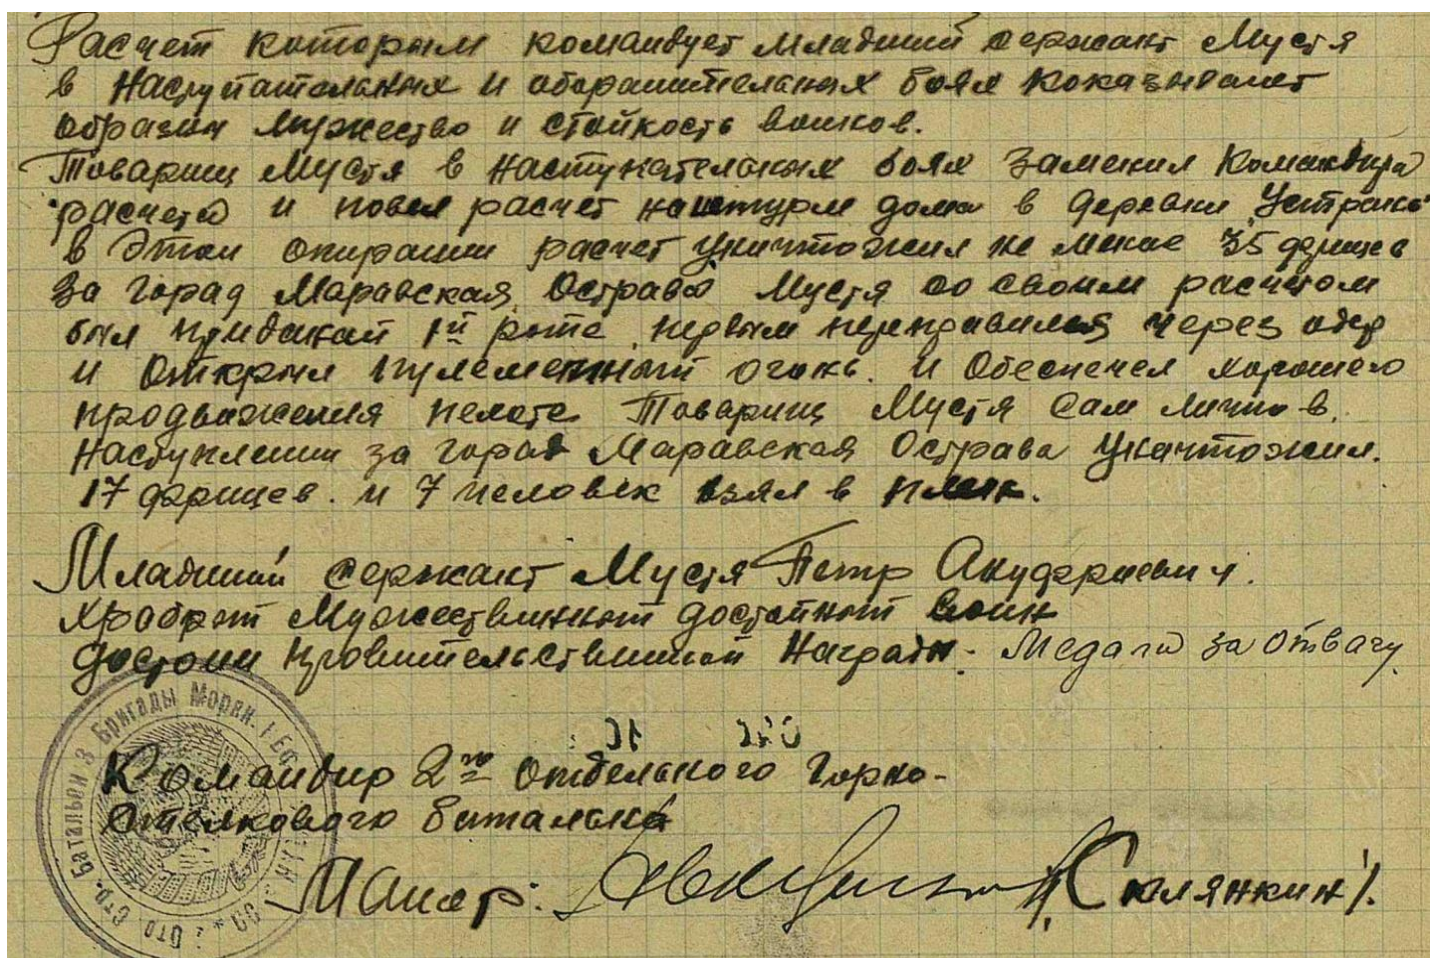 Расчет которым командует младший сержант Мустя
в наступательных и оборонительных боях показывает
образцы мужество и стойкость воинов.
Товарищ Мустя в наступательных боях заменил командира
расчета и повел расчет на штурм дома в деревни
в этой операции расчет уничтожил не менее 35 фрицев
За город Маравская Острава Мустя со своим расчетом
был приданый 1й роте первым переправился через одер
и открыл пулеметный огонь. и обеспечел хорошего
продвожения пехоте Товарищ Мустя сам лично в.
наступлении за город Маравская Острава уничтожил.
17 фрицев. и 7 человек взял в плен.
Младший сержант Мустя Петр Ануфриевич.
храбрый мужественный достойный воин
достоин правительственной награды. Медали за отвагу
Командир 2го отдельного горно-
стрелкового батальона
Маиор: /Склянкин/.
Отд. Стр. Батальон 3 Бригады